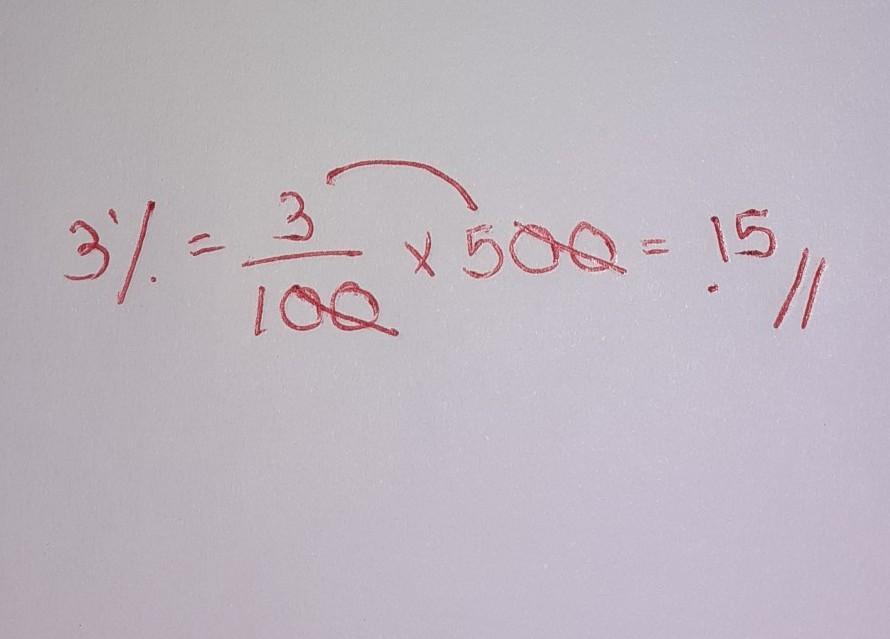 3% = 3/100 × 500 = 15//